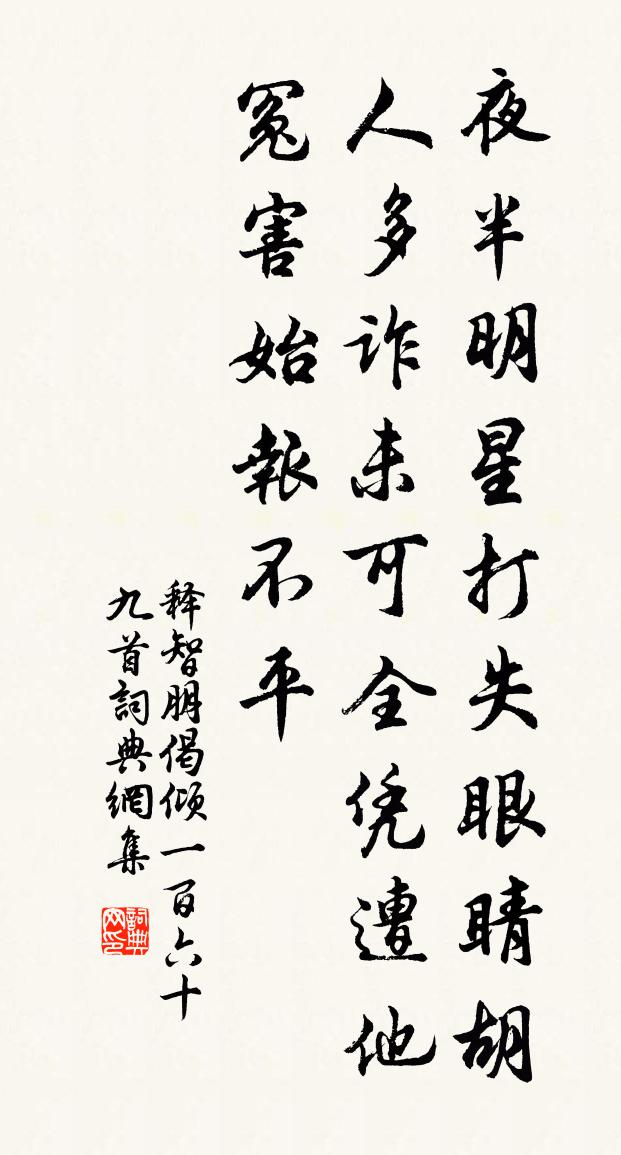 夜半明星打失眼睛胡
人多诈未可全凭遭他
冤害始報不平
释智朋偈倾一百六十
九首詞典網集
詞典网印